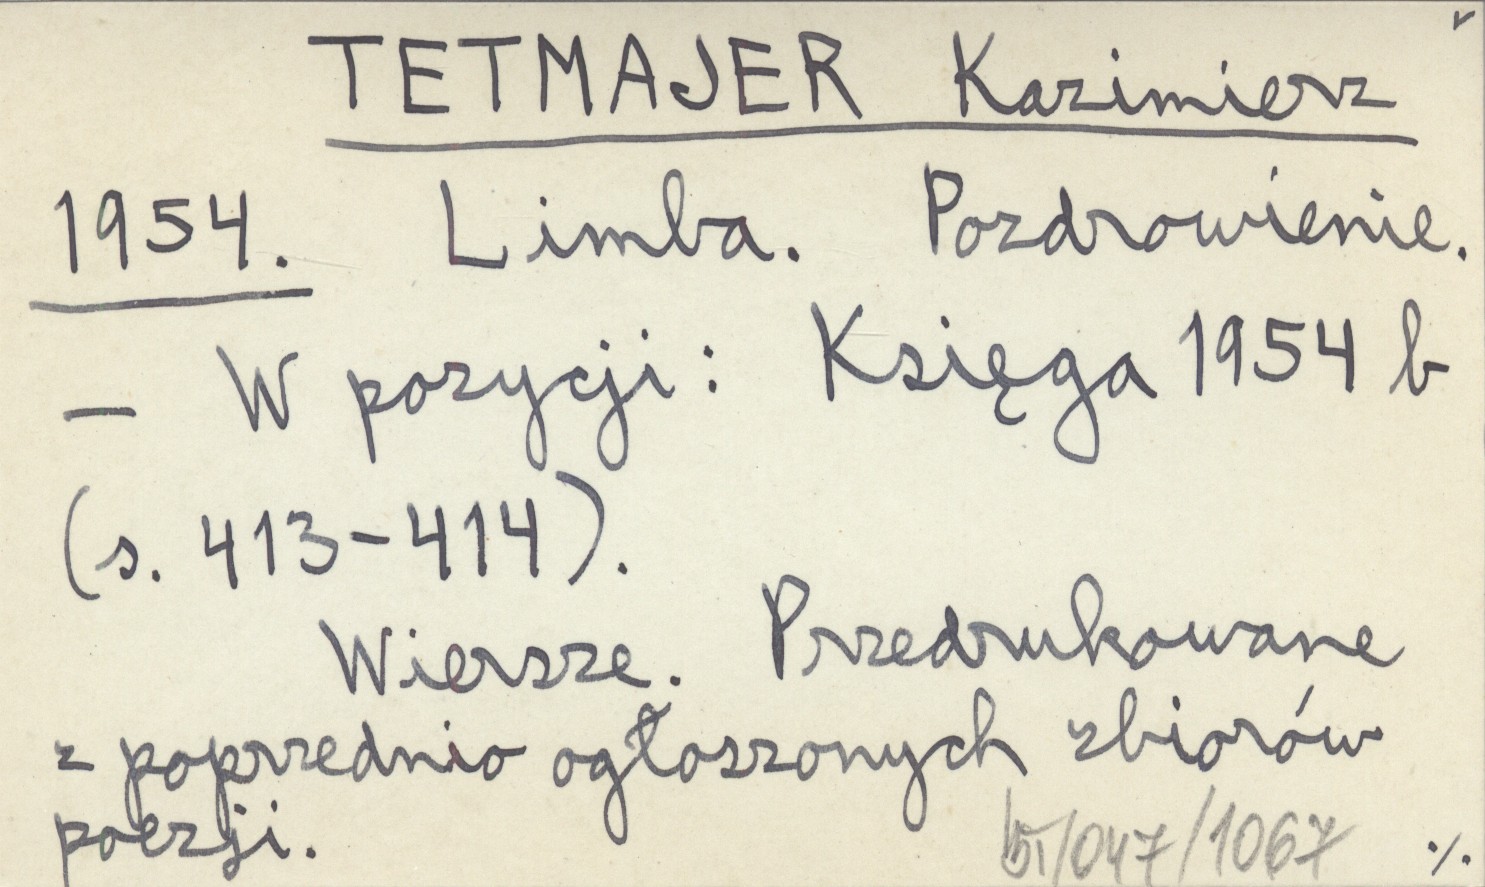 TETMAJER Kazimierz
1954. Limba. Pozdrowienie.
— W pozycji: Księga 1954 b
(s. 413-414).
Wiersze. Przedrukowane
z poprzednio ogłoszonych zbiorów
poezji.
/047/1067 ./.